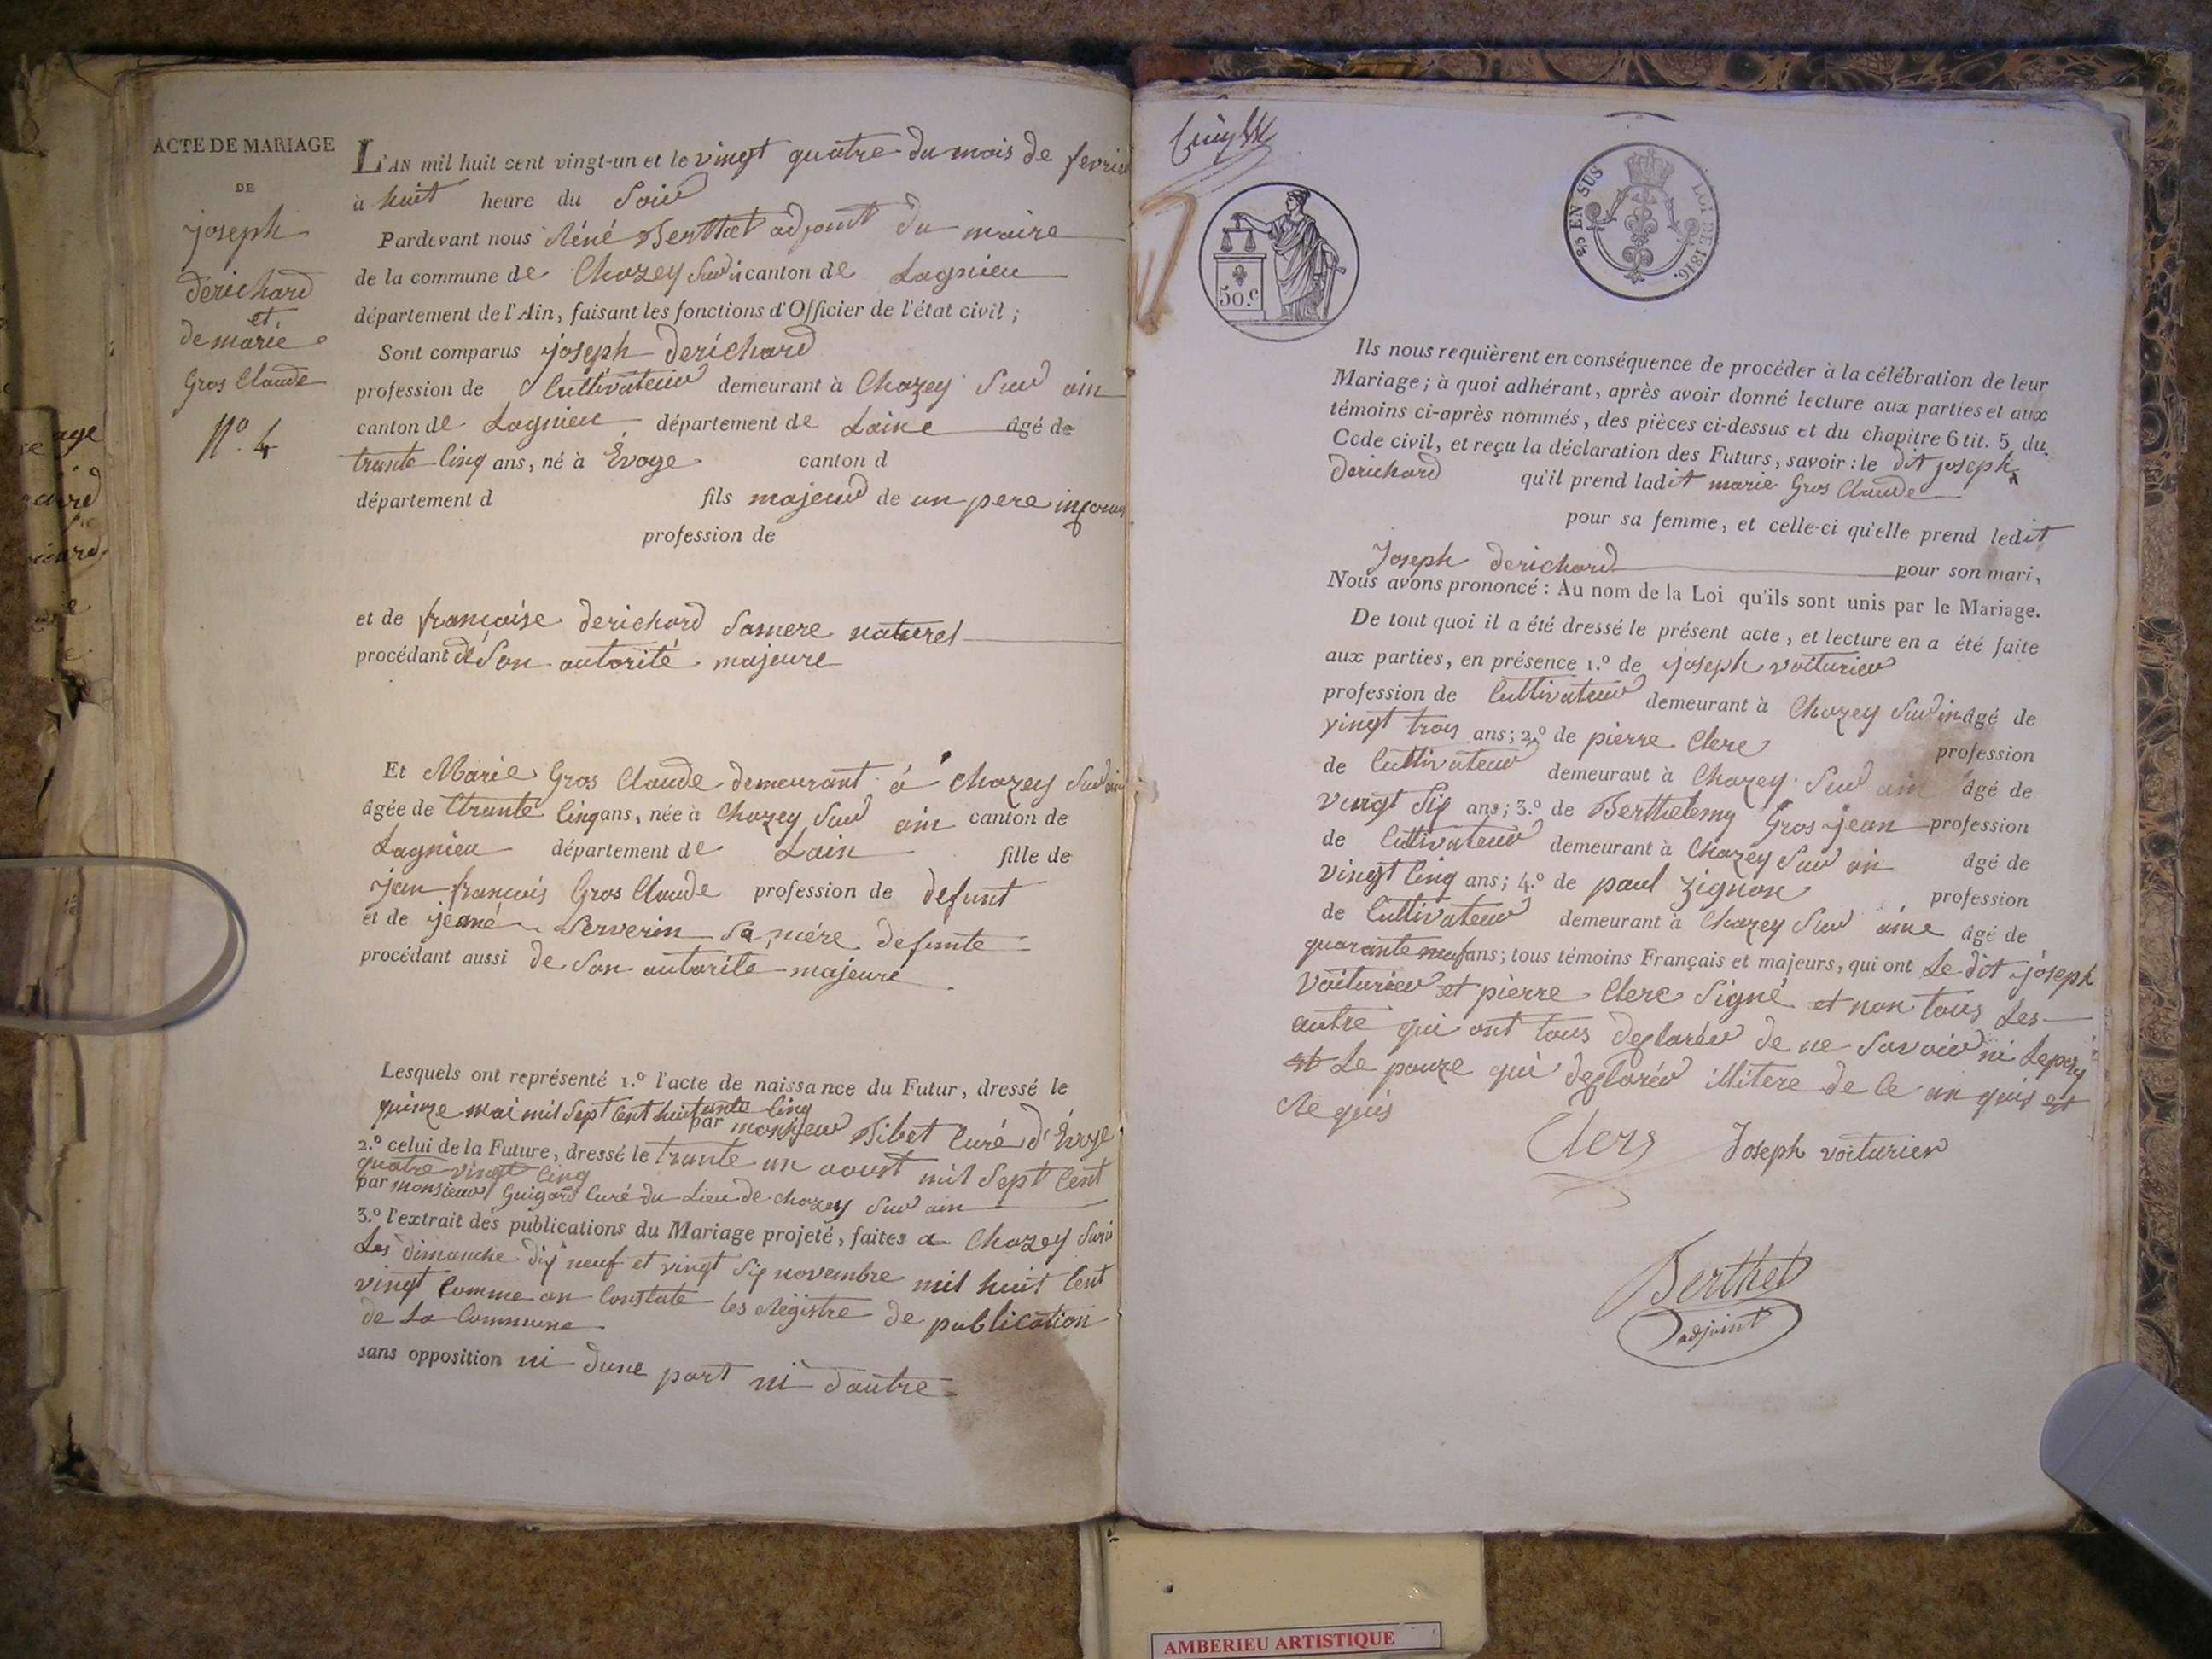 ACTE DE MARIAGE
DE
joseph
derichard
et
de marie
Gros Claude
N.º 4
L'AN mil huit cent vingt-un et le vingt quatre du mois de fevrier
à huit heure du Soir
Pardevant nous Réné Berthet adjoint du maire
de la commune de Chazey Sur canton de Lagnieu
département de l'Ain, faisant les fonctions d'Officier de l'état civil ;
Sont comparus joseph derichard
profession de Cultivateur demeurant à Chazey Sur ain
canton de Lagnieu département de Laine âgé de
trante Cinq ans, né à Évoge canton d
département d fils majeur de un pere inconu
profession de
et de françoise derichard Samere naturel
procédant de Son autorité majeure
Et Marie Gros Claude demeurant á Chazey Sur ain
âgée de trante Cinq ans, née à Chazey Sur ain canton de
Lagnieu département de Lain fille de
jean françois Gros Claude profession de defunt
et de jeane Serverin Sa mére defunte
procédant aussi de Son autorite majeure
Lesquels ont représenté 1.º l'acte de naissance du Futur, dressé le
quinze mai mil Sept Cent huitante Cinq
par monsieur Tibet Curé d'Évoge
2.º celui de la Future, dressé le trante un aoust mil Sept Cent
quatre vingt Cinq
par monsieur Guigard Curé du Lieu de chazey Sur ain
3.º l'extrait des publications du Mariage projeté, faites a Chazey Sur
Les dimanche dix neuf et vingt Six novembre mil huit Cent
vingt Comme on Constate les Régistre de publication
de La Commune
sans opposition ni dune part ni dautre
50.c
25 EN SUS
LOI DE 1816.
Ils nous requièrent en conséquence de procéder à la célébration de leur
Mariage ; à quoi adhérant, après avoir donné lecture aux parties et aux
témoins ci-après nommés, des pièces ci-dessus et du chapitre 6 tit. 5 du
Code civil, et reçu la déclaration des Futurs, savoir : le dit joseph
derichard qu'il prend ladit marie Gros Claude
pour sa femme, et celle-ci qu'elle prend ledit
Joseph derichard pour son mari,
Nous avons prononcé : Au nom de la Loi qu'ils sont unis par le Mariage.
De tout quoi il a été dressé le présent acte, et lecture en a été faite
aux parties, en présence 1.º de joseph voiturier
profession de Cultivateur demeurant à Chazey Sur in âgé de
vingt trois ans ; 2.º de pierre Clerc profession
de Cultivateur demeurant à Chazey Sur ain âgé de
vingt Six ans ; 3.º de Berthelemy Gros jean profession
de Cultivateur demeurant à Chazey Sur ain âgé de
vingt Cinq ans ; 4.º de paul Zignon profession
de Cultivateur demeurant à Chazey Sur aine âgé de
quarante neuf ans ; tous témoins Français et majeurs, qui ont Le dit joseph
Voiturier et pierre Clerc Signé et non tous Les
autre qui ont tous declarér de ne Savoir ni
Le qui declarér de ce
Requis
Clerc Joseph voiturier
Berthet
adjoint
AMBERIEU ARTISTIQUE